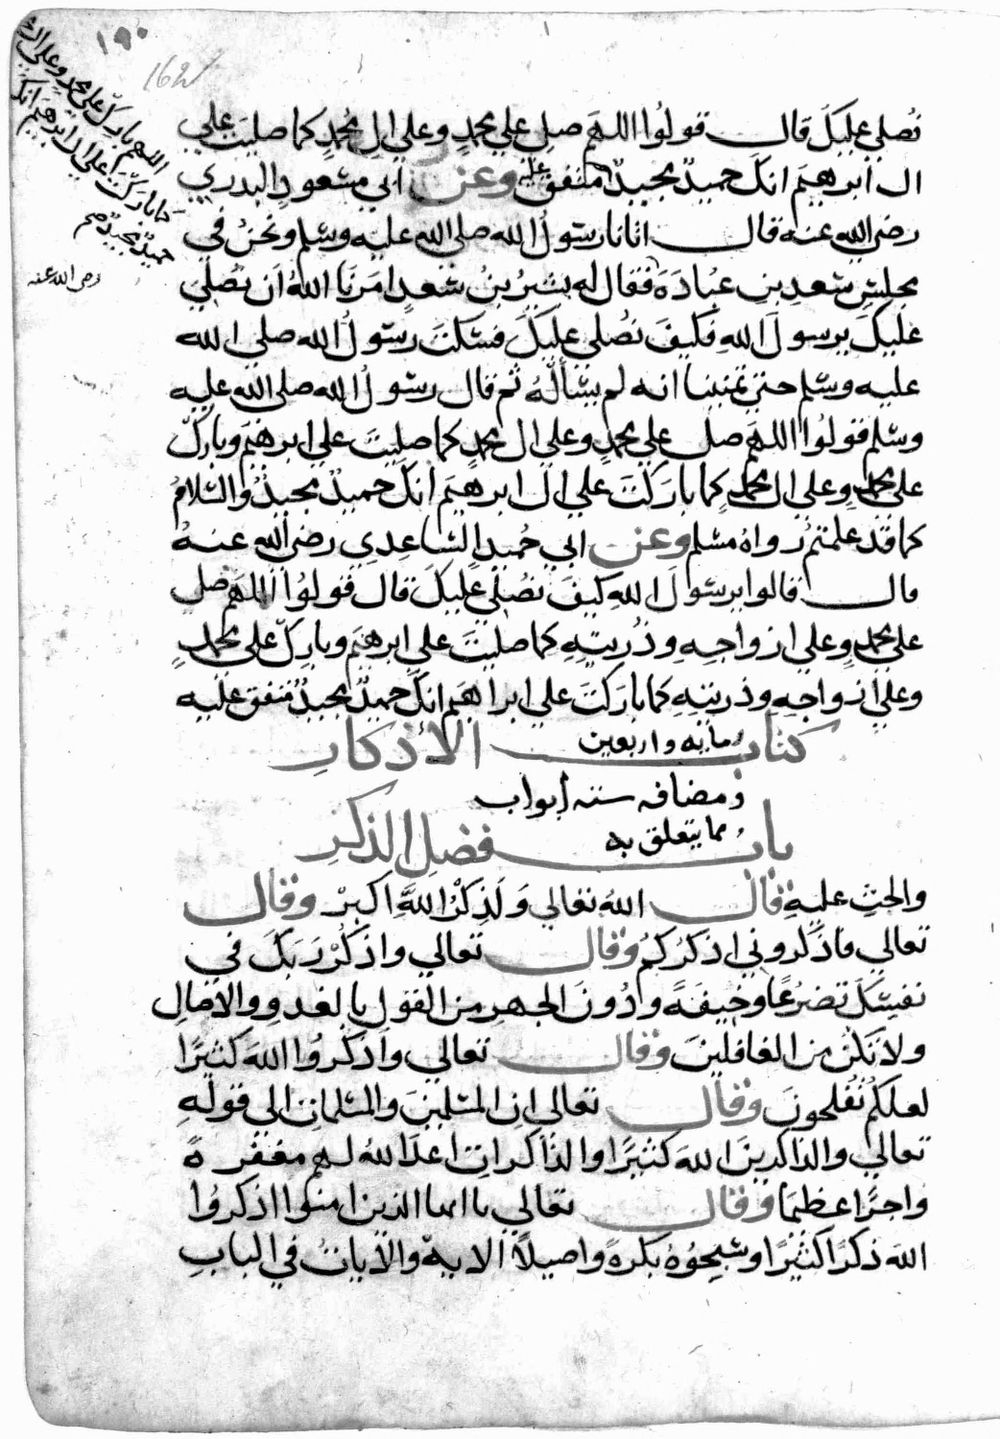 ١٩٠
162
اللهم بارك على محمد وعلى ال
كما باركت على ال ابرهيم انك
حميد مجيد صح
رضى الله عنه
نصلي عليك قال قولوا اللهم صل علي محمد وعلي ال محمد كما صليت علي
ال ابرهيم انك حميد مجيد متفق عليه وعن ابي مسعود البدري
رضى الله عنه قال اتانا رسول الله صلى الله عليه وسلم ونحن في
مجلس سعد بن عبادة فقال له بشير بن سعد امرنا الله ان نصلي
عليك يرسول الله فكيف نصلي عليك فسكت رسول الله صلى الله
عليه وسلم حتى تمنينا انه لم يسأله ثم قال رسول الله صلى الله عليه
وسلم قولوا اللهم صل علي محمد وعلي ال محمد كما صليت علي ابرهيم وبارك
علي محمد وعلي ال محمد كما باركت علي ال ابرهيم انك حميد مجيد والسلام
كما قد علمتم رواه مسلم وعن ابي حميد الساعدي رضى الله عنه
قال قالوا يرسول الله كيف نصلي عليك قال قولوا اللهم صل
علي محمد وعلي ازواجه وذريته كما صليت علي ابرهيم وبارك علي محمد
وعلي ازواجه وذريته كما باركت علي ابراهيم انك حميد مجيد متفق عليه
كتاب الاذكار
ومايه واربعين
ومضافه ستة ابواب
باب فضل الذكر
مما يتعلق به
والحث عليه قال الله تعالي ولذكر الله اكبر وقال
تعالي فاذكروني اذكركم وقال تعالي واذكر ربك في
نفسك تضرعا وخيفة ودون الجهر من القول بالغدو والاصال
ولا تكن من الغافلين وقال تعالي واذكروا الله كثيرا
لعلكم تفلحون وقال تعالي ان المسلمين والمسلمات الي قوله
تعالي والذاكرين الله كثيرا والذاكرات اعد الله لهم مغفرة
واجرا عظيما وقال تعالي يا ايها الذين امنوا اذكروا
الله ذكرا كثيرا وسبحوه بكرة واصيلا الاية والايات في الباب